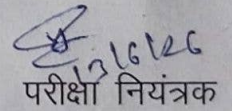 3/6/26
परीक्षा नियंत्रक